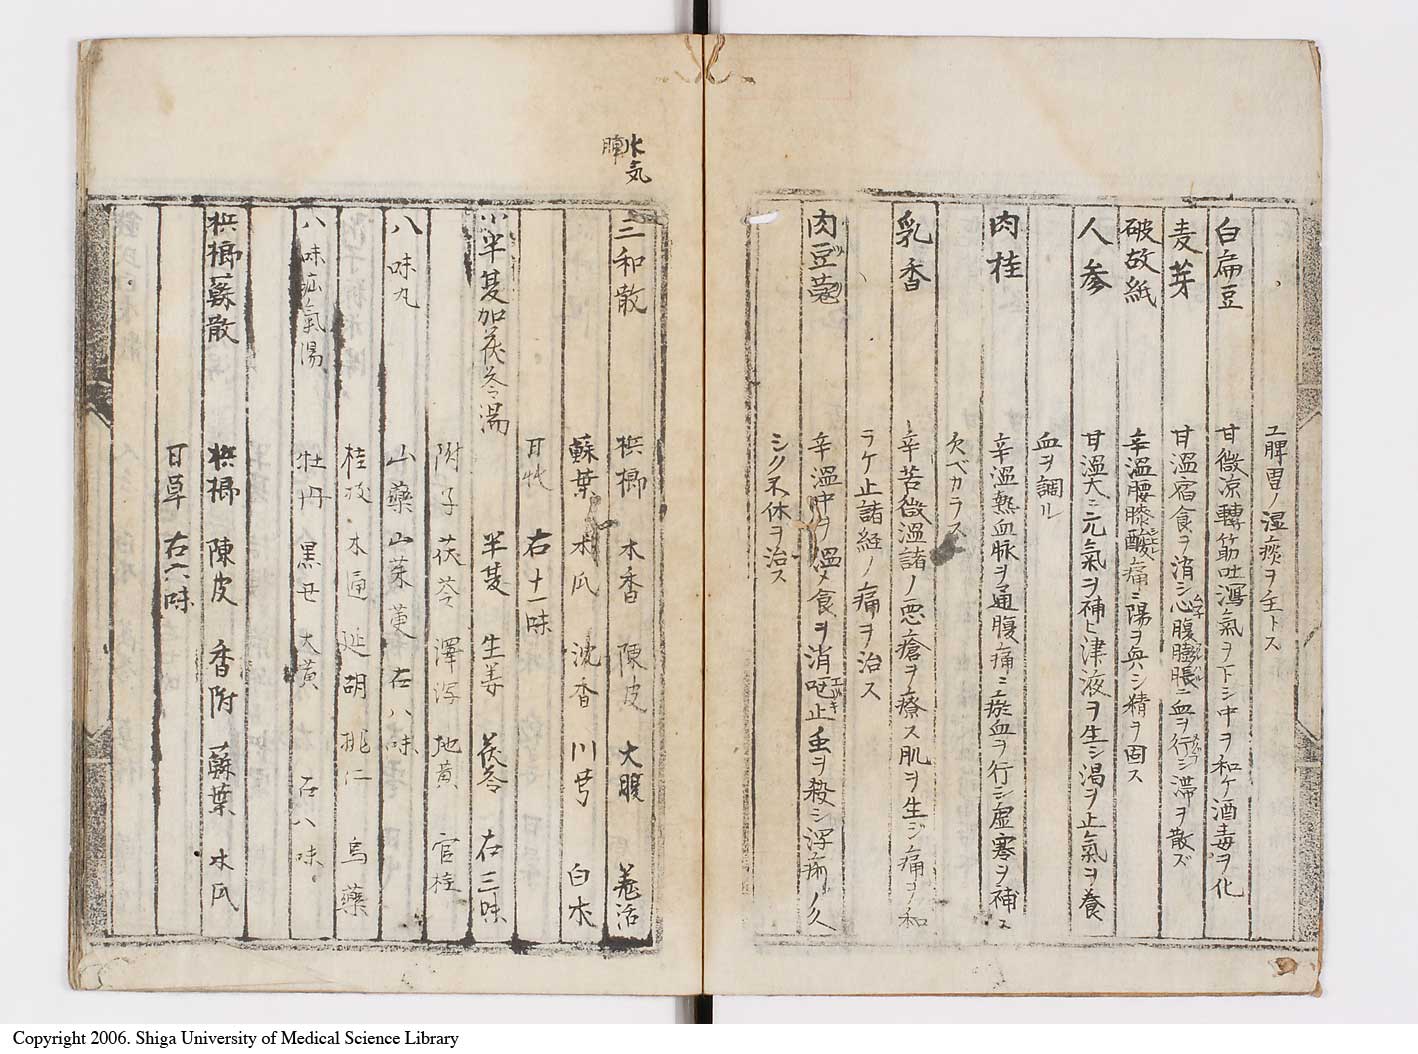 ヱ脾胃ノ湿痰ヲ主トス
白扁豆 甘微凉轉筋吐瀉氣ヲ下シ中ヲ和ケ酒毒ヲ化
麦芽 甘温宿食ヲ消シ心腹膨脹ニ血ヲ行シ滞ヲ散ズ
破故紙 辛温腰膝酸痛ニ陽ヲ興シ精ヲ固ス
人参 甘温大ニ元氣ヲ補ヒ津液ヲ生シ渇ヲ止氣ヲ養
血ヲ調ル
肉桂 辛温熱血脉ヲ通腹痛ニ瘀血ヲ行シ虚寒ヲ補ス
欠ベカラス
乳香 辛苦微温諸ノ悪瘡ヲ療ス肌ヲ生ジ痛ヲ和
ラケ止諸経ノ痛ヲ治ス
肉豆蔲 辛温中ヲ温メ食ヲ消吐止虫ヲ殺シ浮ノ久
シク不休ヲ治ス
水気
脾
三和散 梹榔 木香 陳皮 大腹 羗活
蘇葉 木瓜 沈香 川芎 白朮
甘草 右十一味
小半夏加茯苓湯 半夏 生姜 茯苓 右三味
附子 茯苓 澤瀉 地黄 官桂
八味丸 山藥 山茱萸 右八味
桂枝 木通 延胡 桃仁 烏藥
八味疝氣湯 牡丹 黒丑 大黄 右八味
梹榔蘇散 梹榔 陳皮 香附 蘇葉 木瓜
甘草 右六味
Copyright 2006. Shiga University of Medical Science Library